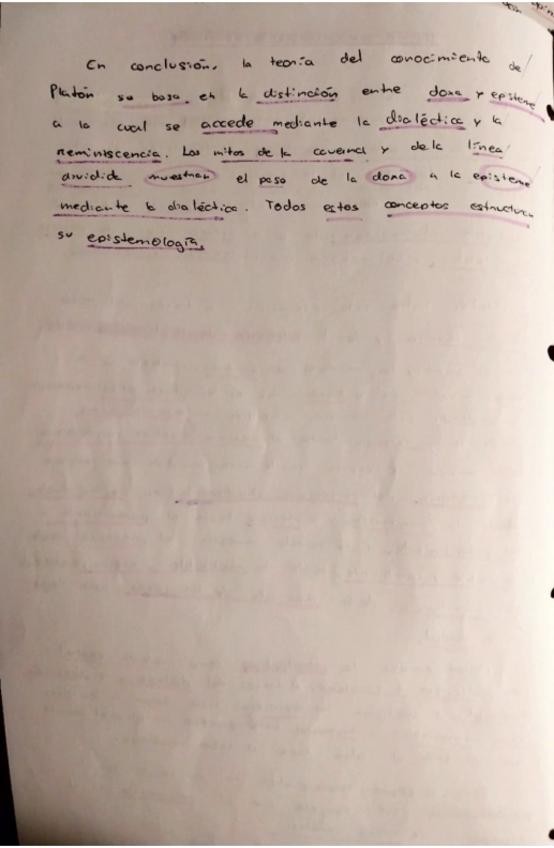 En conclusión, la teoría del conocimiento de
Platón su basa en la distinción entre doxa y episteme
a la cual se accede mediante la dialéctica y la
reminiscencia. Los mitos de la caverna y de la línea
dividida muestran el paso de la doxa a la episteme
mediante la dialéctica. Todos estos conceptos estructuran
su epistemología.